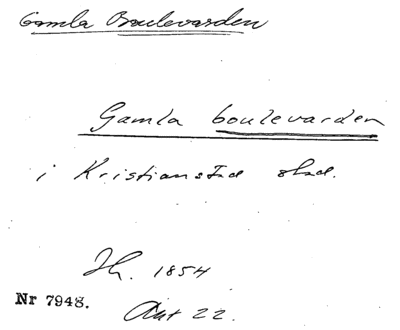 Gamla Boulevarden
Gamla boulevarden
i Kristianstad stad.
Jh. 1854
Nr 7948.
Akt 22.